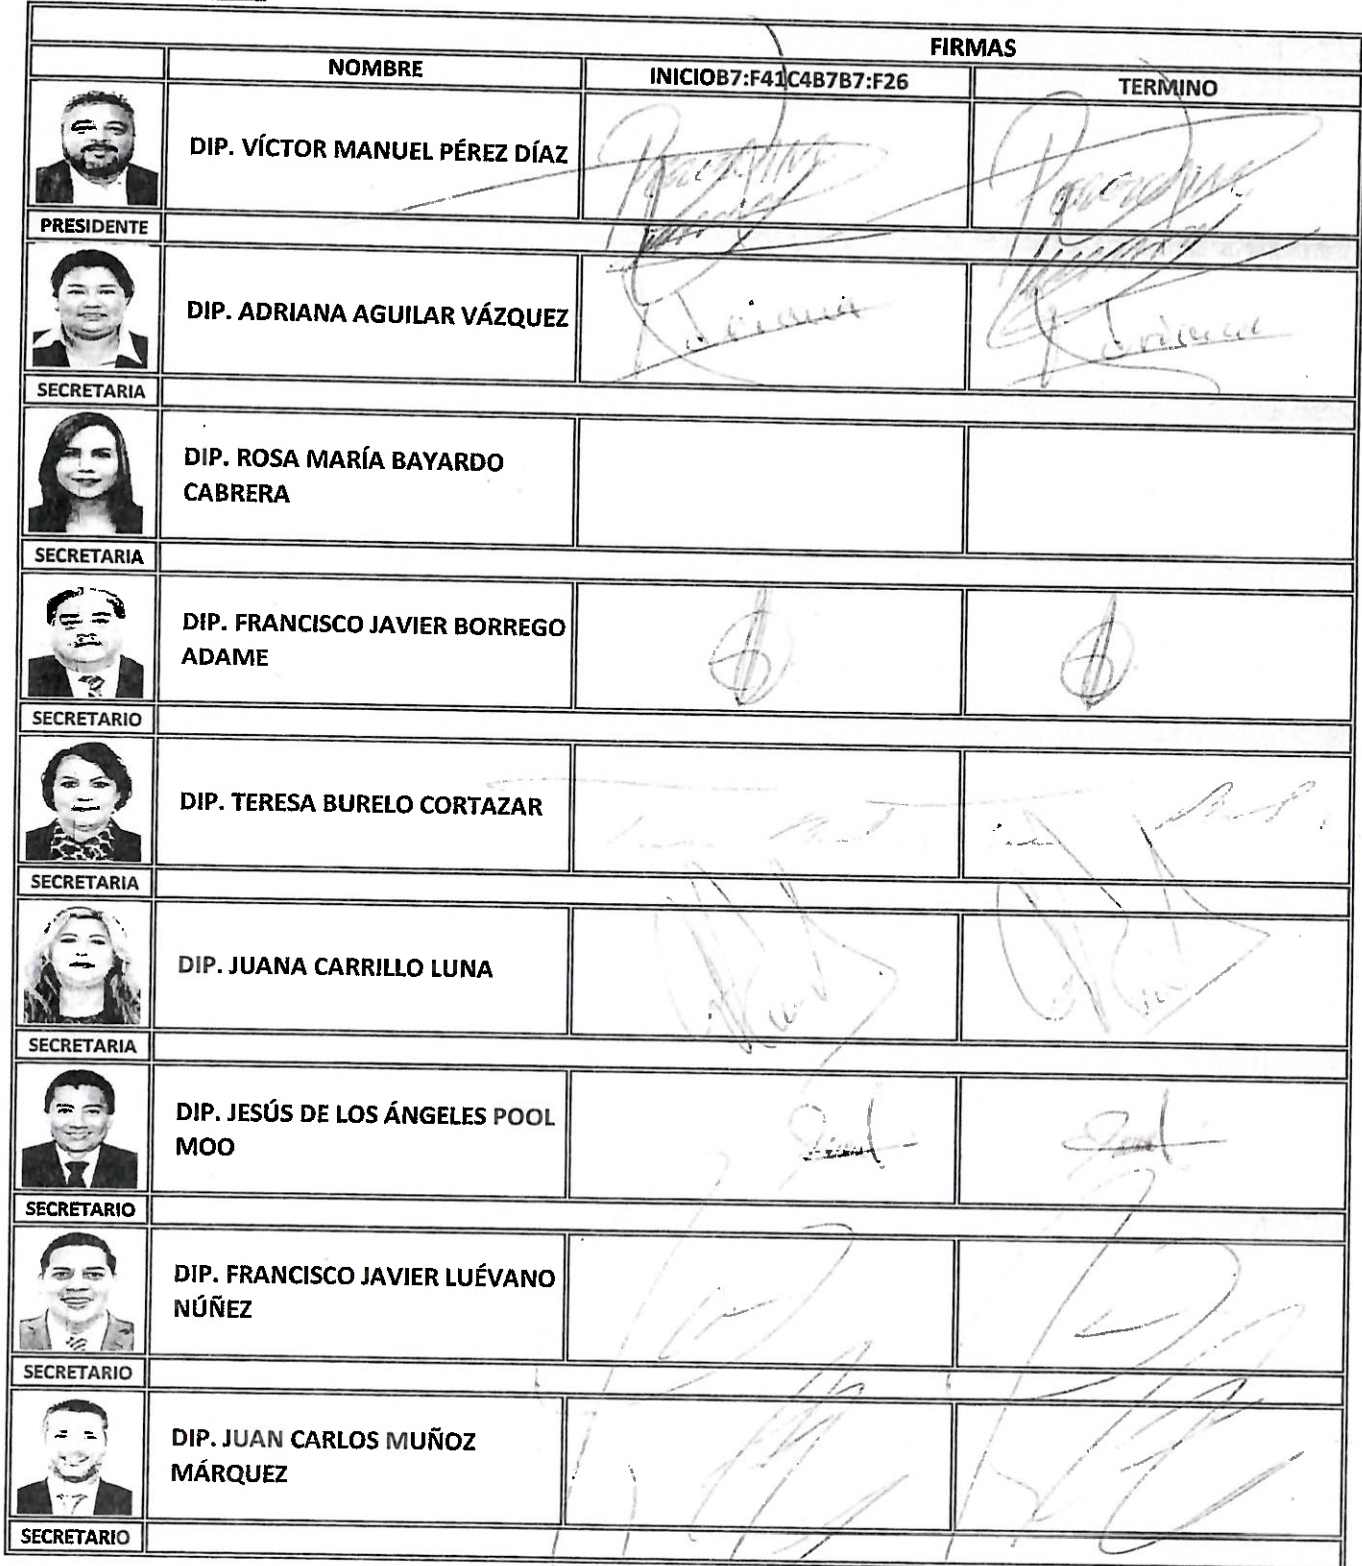 FIRMAS
NOMBRE INICIOB7:F41C4B7B7:F26 TERMINO
DIP. VÍCTOR MANUEL PÉREZ DÍAZ
PRESIDENTE
DIP. ADRIANA AGUILAR VÁZQUEZ
Adriana Adriana
SECRETARIA
DIP. ROSA MARÍA BAYARDO
CABRERA
SECRETARIA
DIP. FRANCISCO JAVIER BORREGO
ADAME
SECRETARIO
DIP. TERESA BURELO CORTAZAR
SECRETARIA
DIP. JUANA CARRILLO LUNA
SECRETARIA
DIP. JESÚS DE LOS ÁNGELES POOL
MOO
SECRETARIO
DIP. FRANCISCO JAVIER LUÉVANO
NÚÑEZ
SECRETARIO
DIP. JUAN CARLOS MUÑOZ
MÁRQUEZ
SECRETARIO